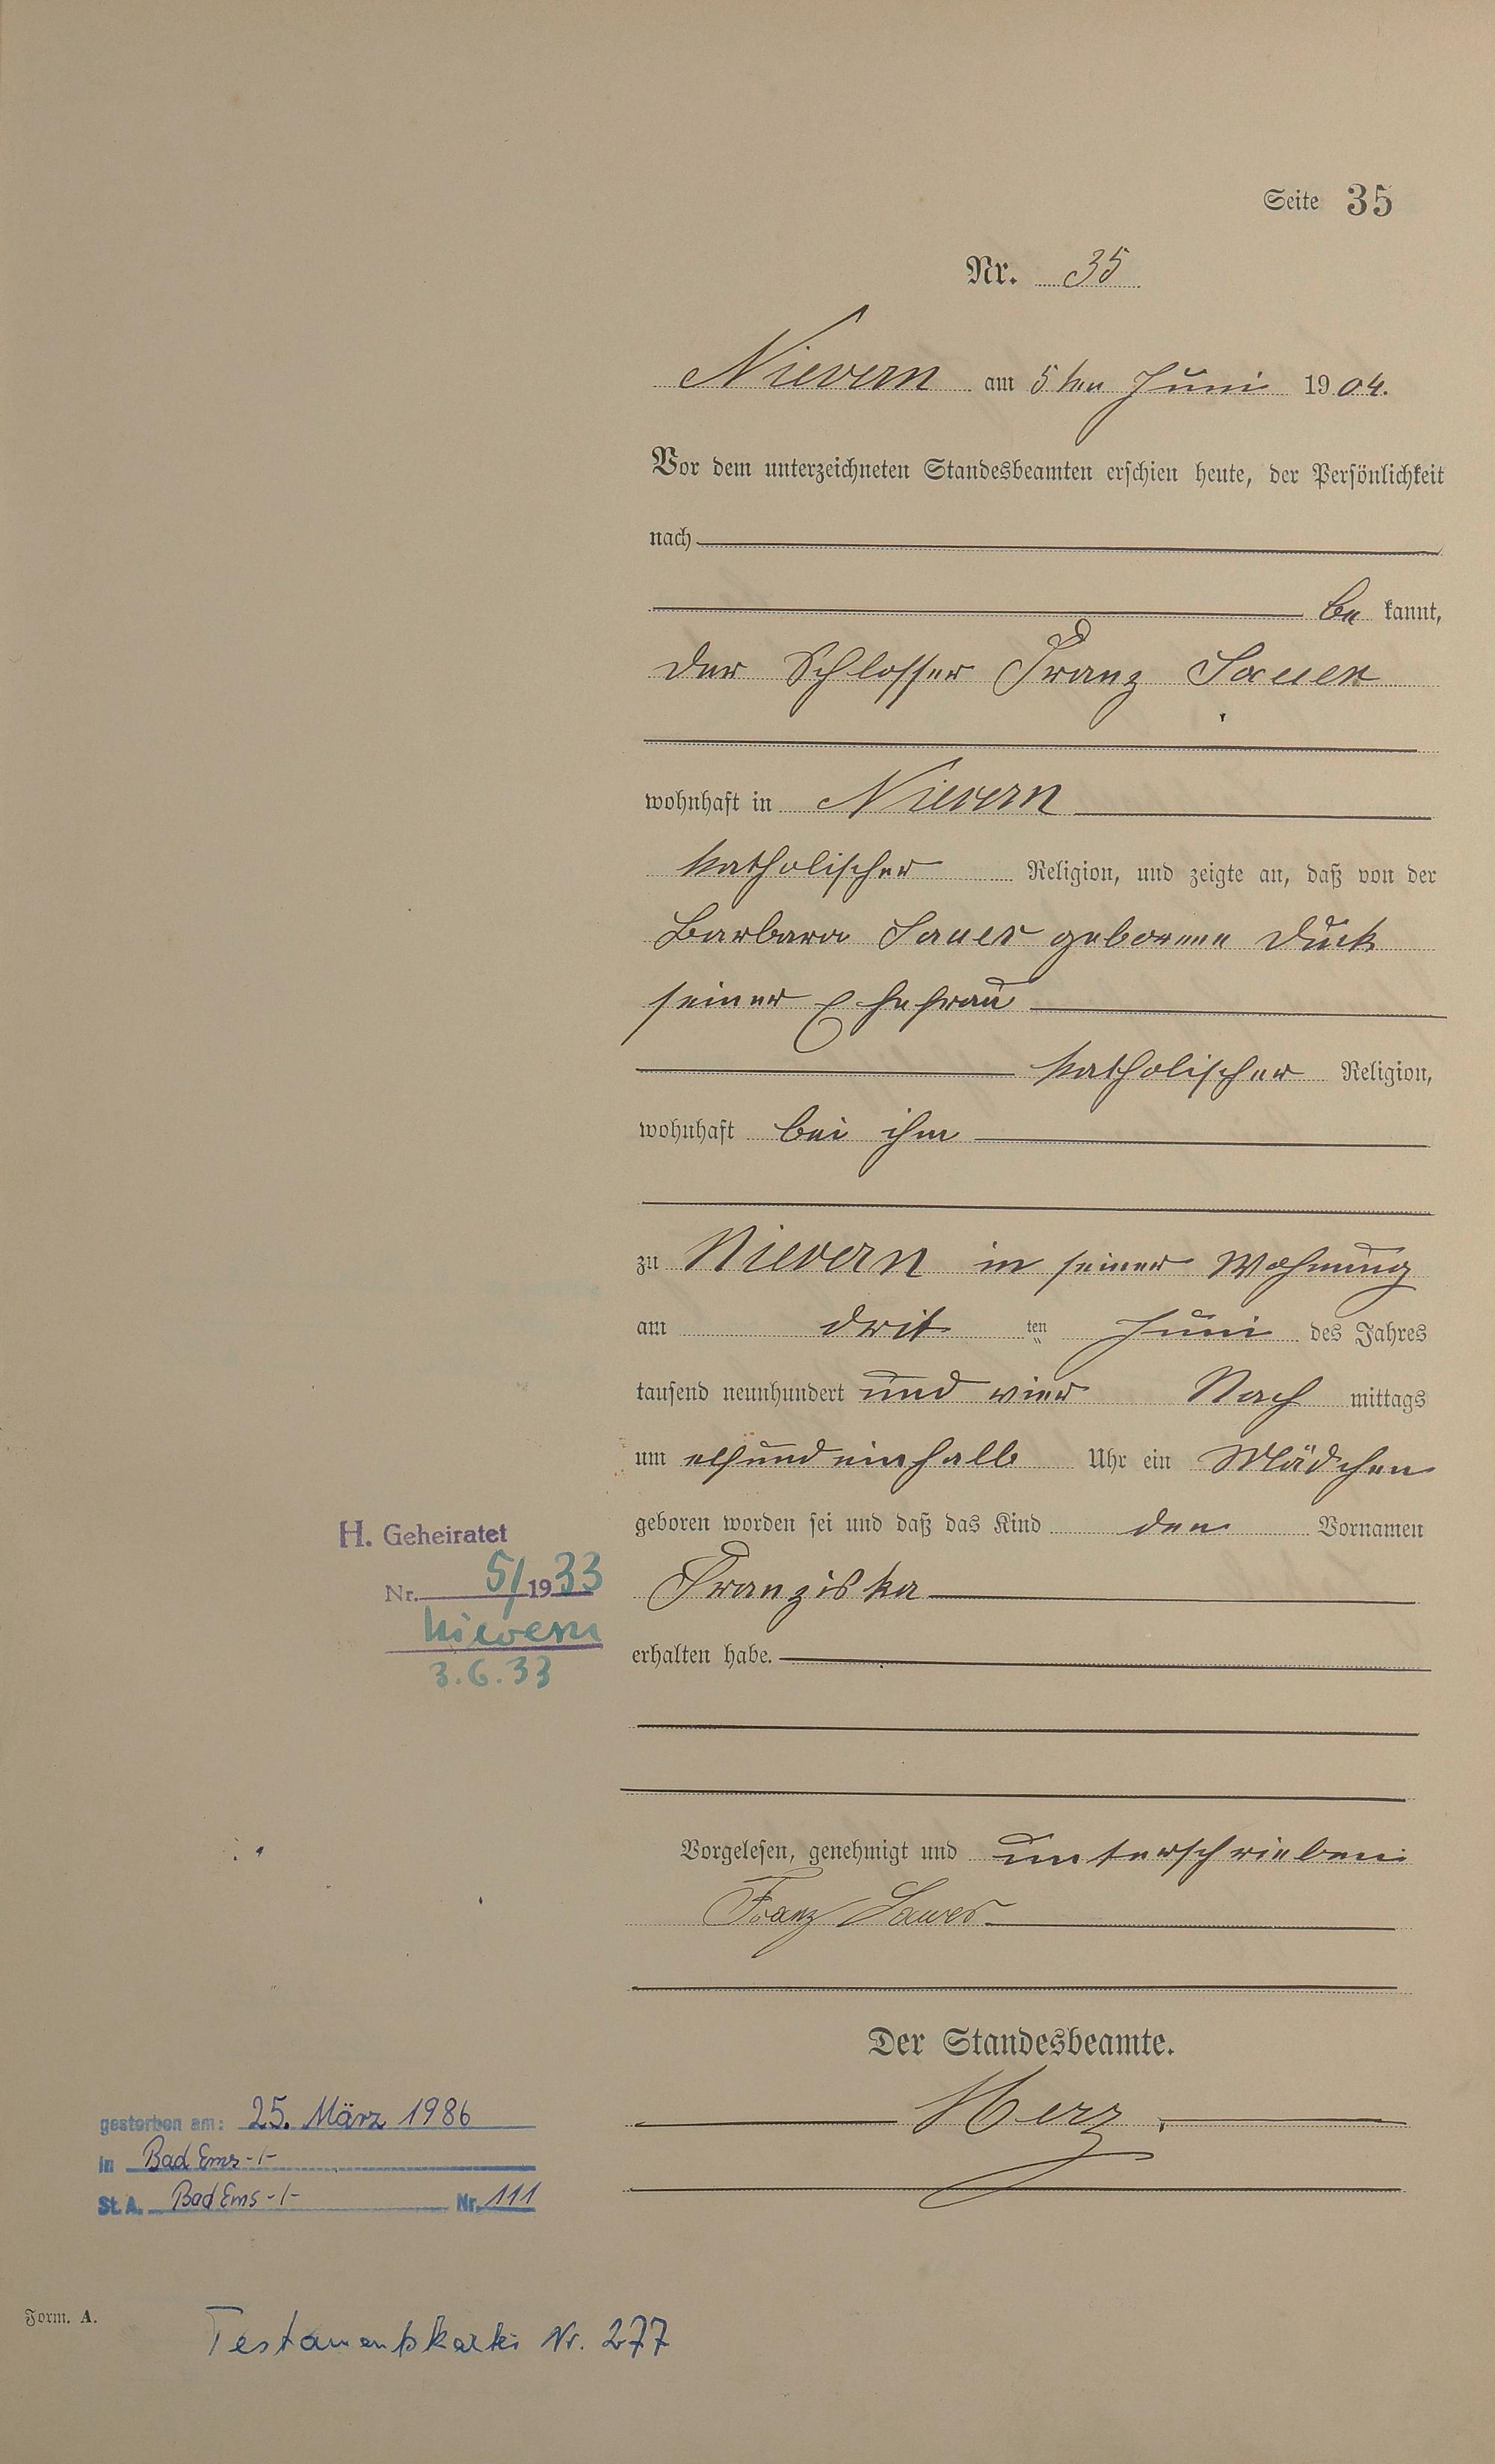 Seite 35
Nr. 35
Nievern am 5ten Juni 1904.
Vor dem unterzeichneten Standesbeamten erschien heute, der Persönlichkeit
nach
be kannt,
der Schlosser Franz Sauer
wohnhaft in Nievern
katholischer Religion, und zeigte an, daß von der
Barbara Sauer geborene Dück
seiner Ehefrau
katholischer Religion,
wohnhaft bei ihm
zu Nievern in seiner Wohnung
am dritten Juni des Jahres
tausend neunhundert und vier Nach mittags
um elfundeinhalb Uhr ein Mädchen
geboren worden sei und daß das Kind den Vornamen
Franziska
erhalten habe.
H. Geheiratet
Nr. 5/1933
Nievern
3.6.33
Vorgelesen, genehmigt und unterschrieben:
Franz Sauer
Der Standesbeamte.
Herz
gestorben am: 25. März 1986
in Bad Ems -/-
St.A. Bad Ems -/- Nr. 111
Form. A.
Testamentskartei Nr. 277